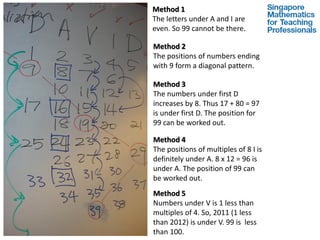 D A V I D
1 2 3 4 5
9 8 7 6
10 11 12 13
17 16 15 14
18 19 20 21
25 24 23 22
26 27 28 29
33 32 31 30
34 35 36 37
39 38
Method 1
The letters under A and I are
even. So 99 cannot be there.
Method 2
The positions of numbers ending
with 9 form a diagonal pattern.
Method 3
The numbers under first D
increases by 8. Thus 17 + 80 = 97
is under first D. The position for
99 can be worked out.
Method 4
The positions of multiples of 8 I is
definitely under A. 8 x 12 = 96 is
under A. The position of 99 can
be worked out.
Method 5
Numbers under V is 1 less than
multiples of 4. So, 2011 (1 less
than 2012) is under V. 99 is  less
than 100.
Singapore
Mathematics
for Teaching
Professionals